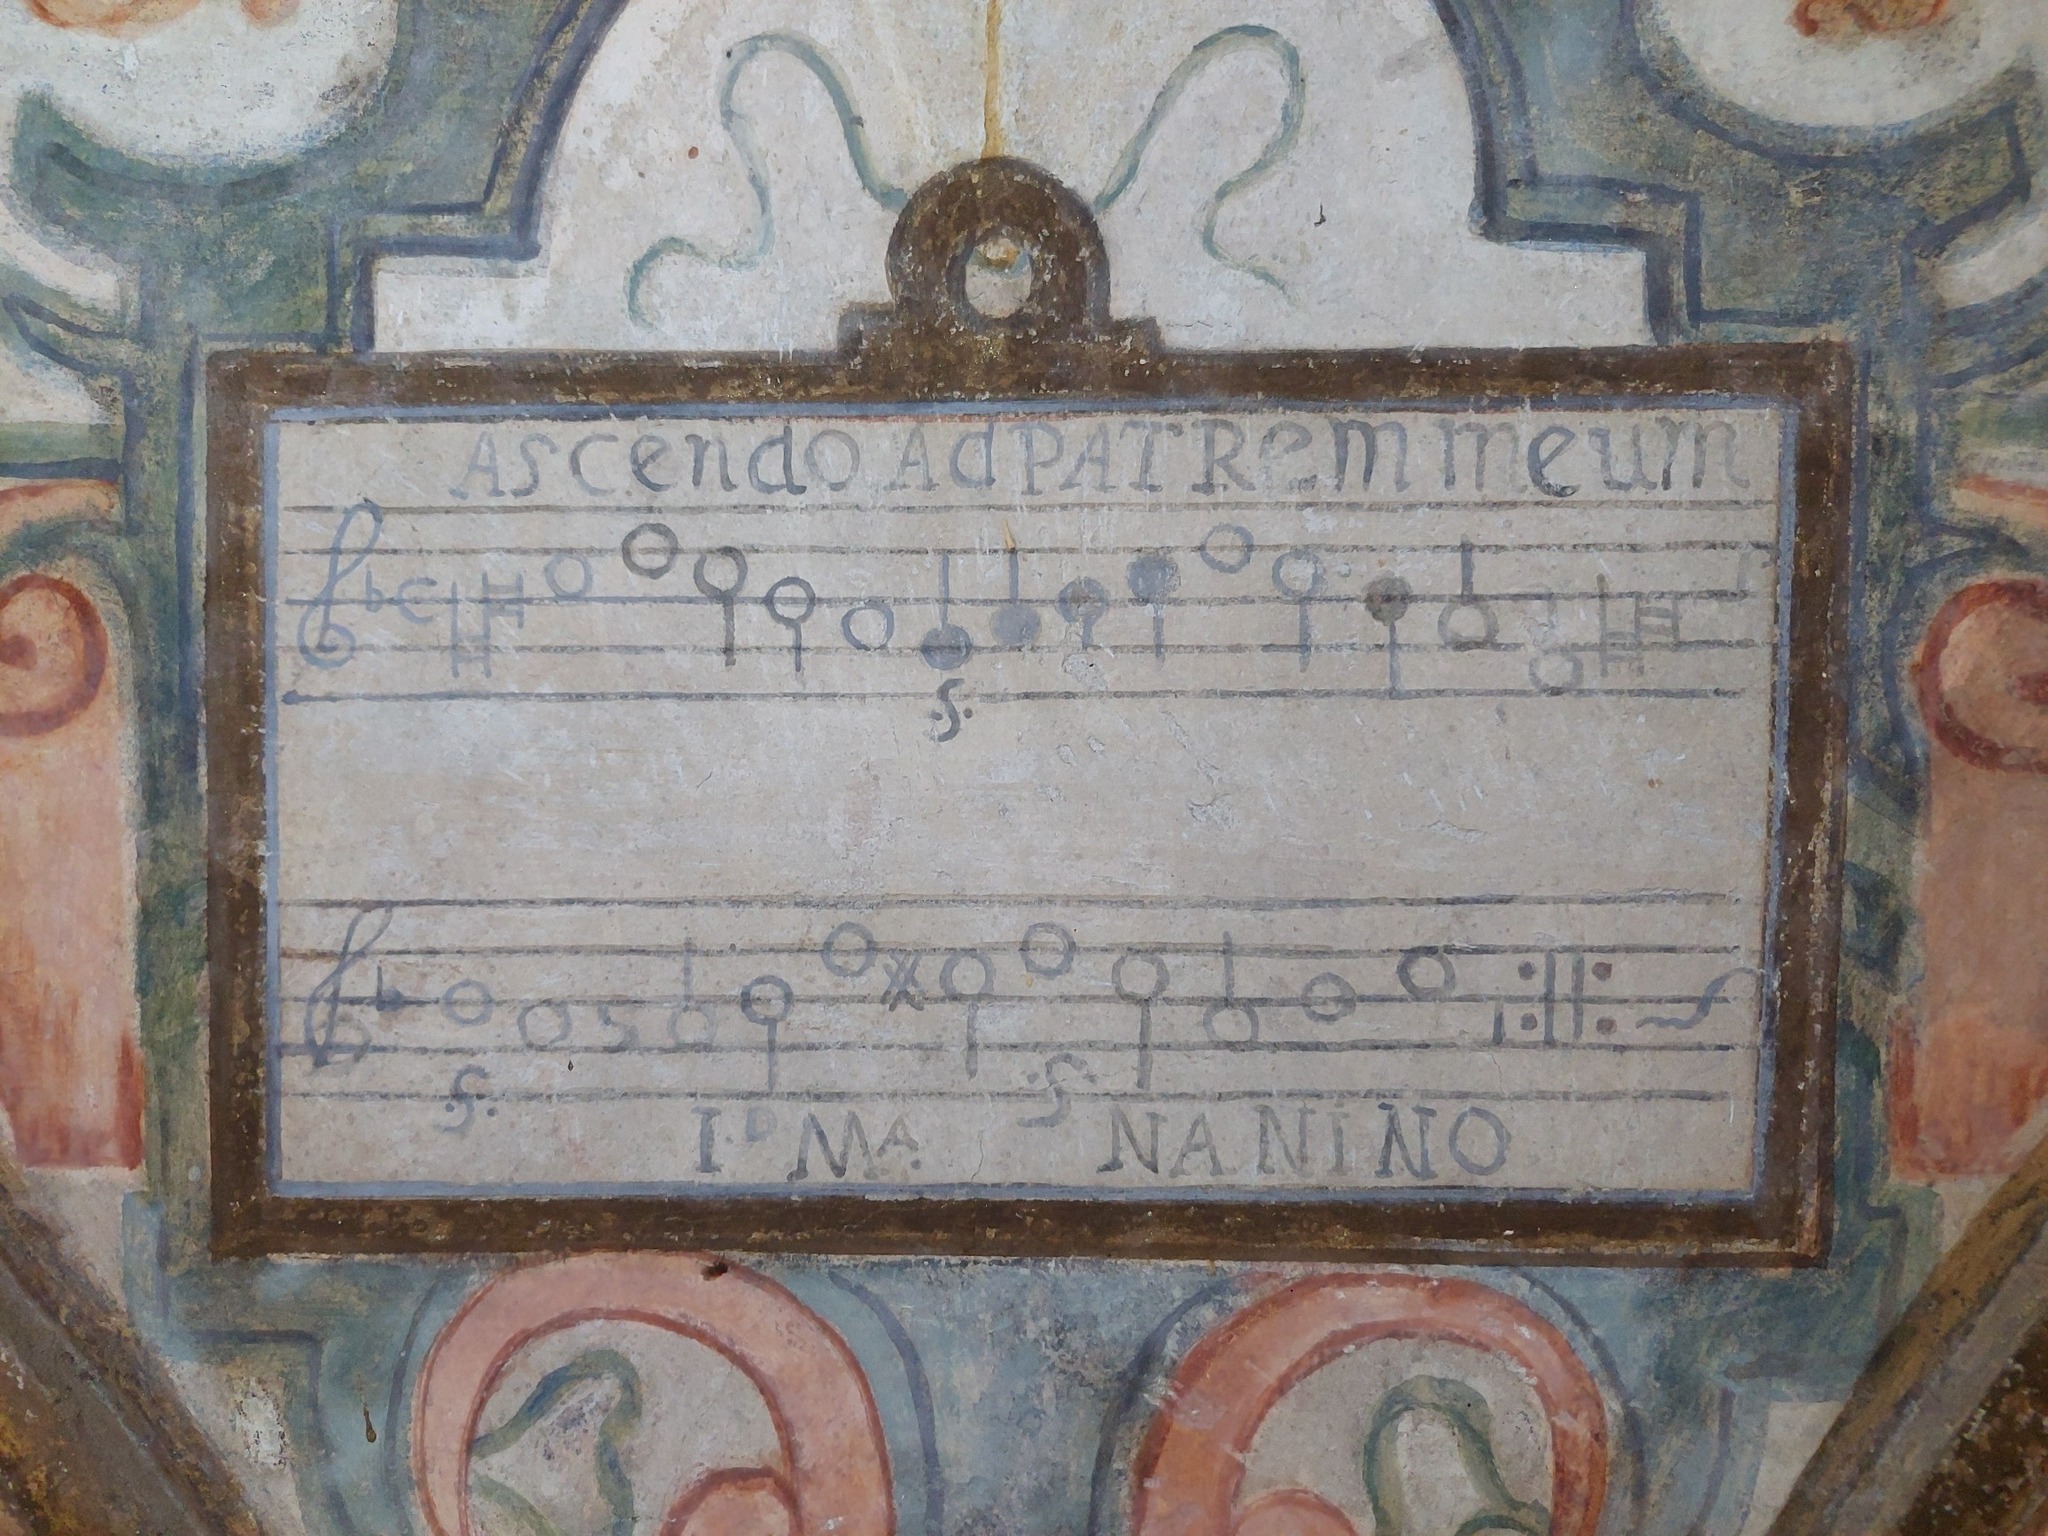 Ascendo Ad PATRem meum
I.D MA. NANiNO